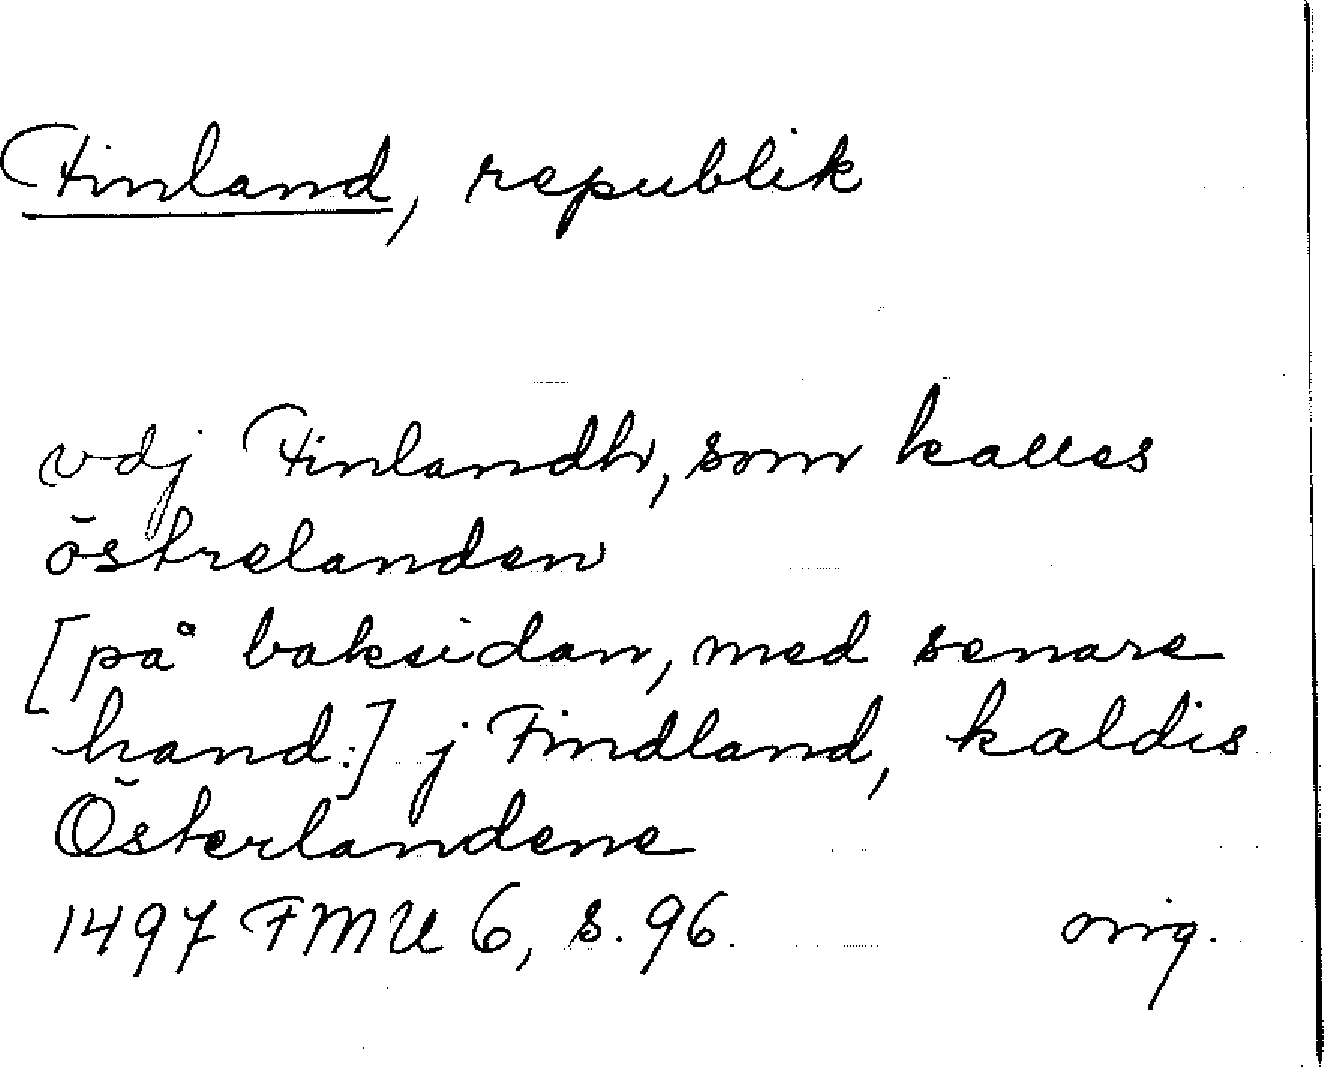 Finland, republik
vdj Finlandh, som kalles
östrelanden
[på baksidan, med senare
hand:] j Findland, kaldis
Österlandene
1497 FMU 6, s. 96. orig.